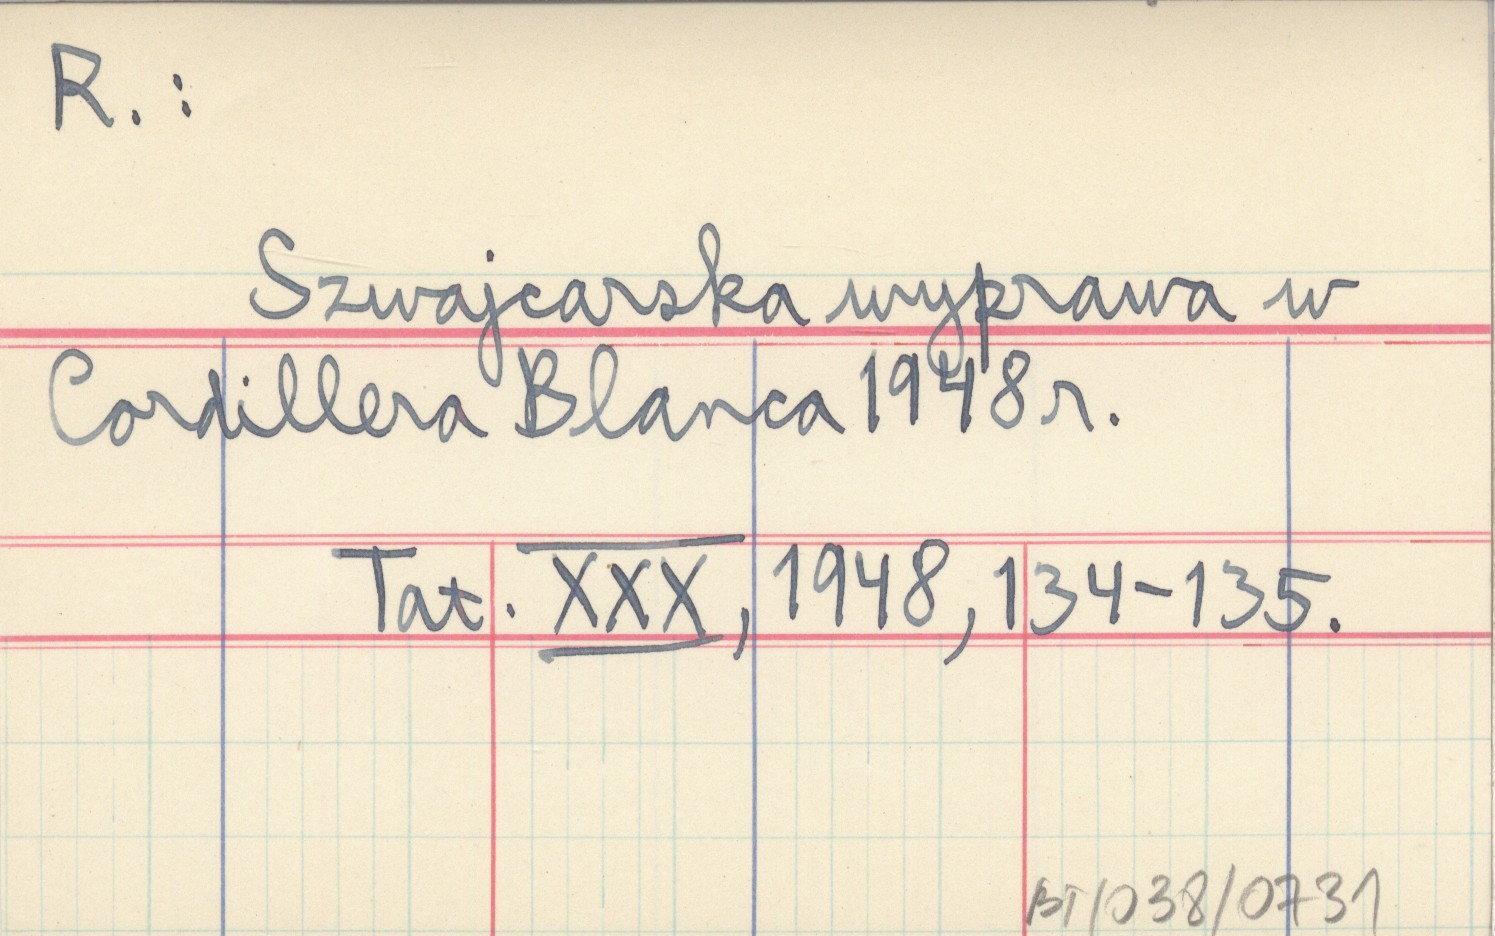 R.:
Szwajcarska wyprawa w
Cordillera Blanca 1948 r.
Tat. XXX, 1948, 134-135.
BT/038/0731